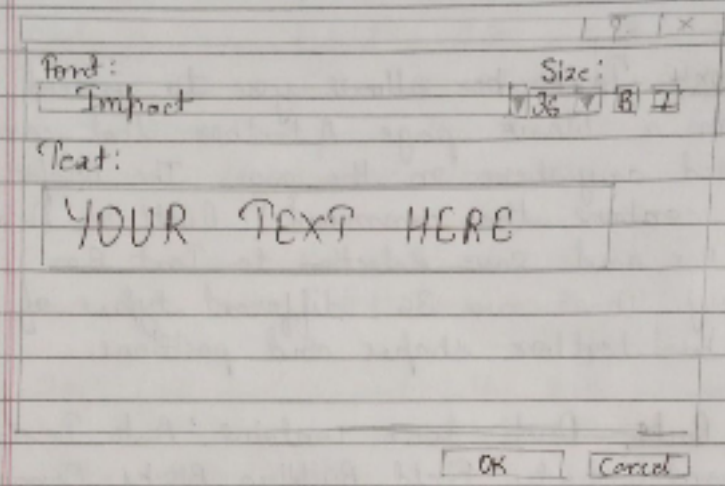 ? ×
Font: Size:
Impact 36 B I
Text:
YOUR TEXT HERE
OK Cancel